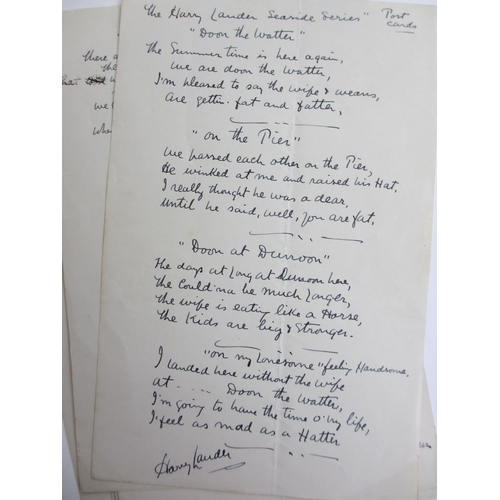 The Harry Lauder Seaside Series" Post cards
"Doon the Watter"
The Summer time is here again,
we are doon the watter,
I'm pleased to say the wife & weans,
are gettin' fat and fatter,
"on the Pier"
we passed each other on the Pier,
He winked at me and raised his Hat,
I really thought he was a dear,
until he said, well, you are fat.
"Doon at Dunoon"
The days at Long at Dunoon here,
The Could'na be much Longer,
The wife is eating like a Horse,
The Kids are big & Stronger.
"on my Lonesome" feeling Handsome,
I Landed here without the wife
at..... Doon the Watter,
I'm going to have the time o' my life,
I feel as mad as a Hatter
Harry Lauder
there
the
hat
we